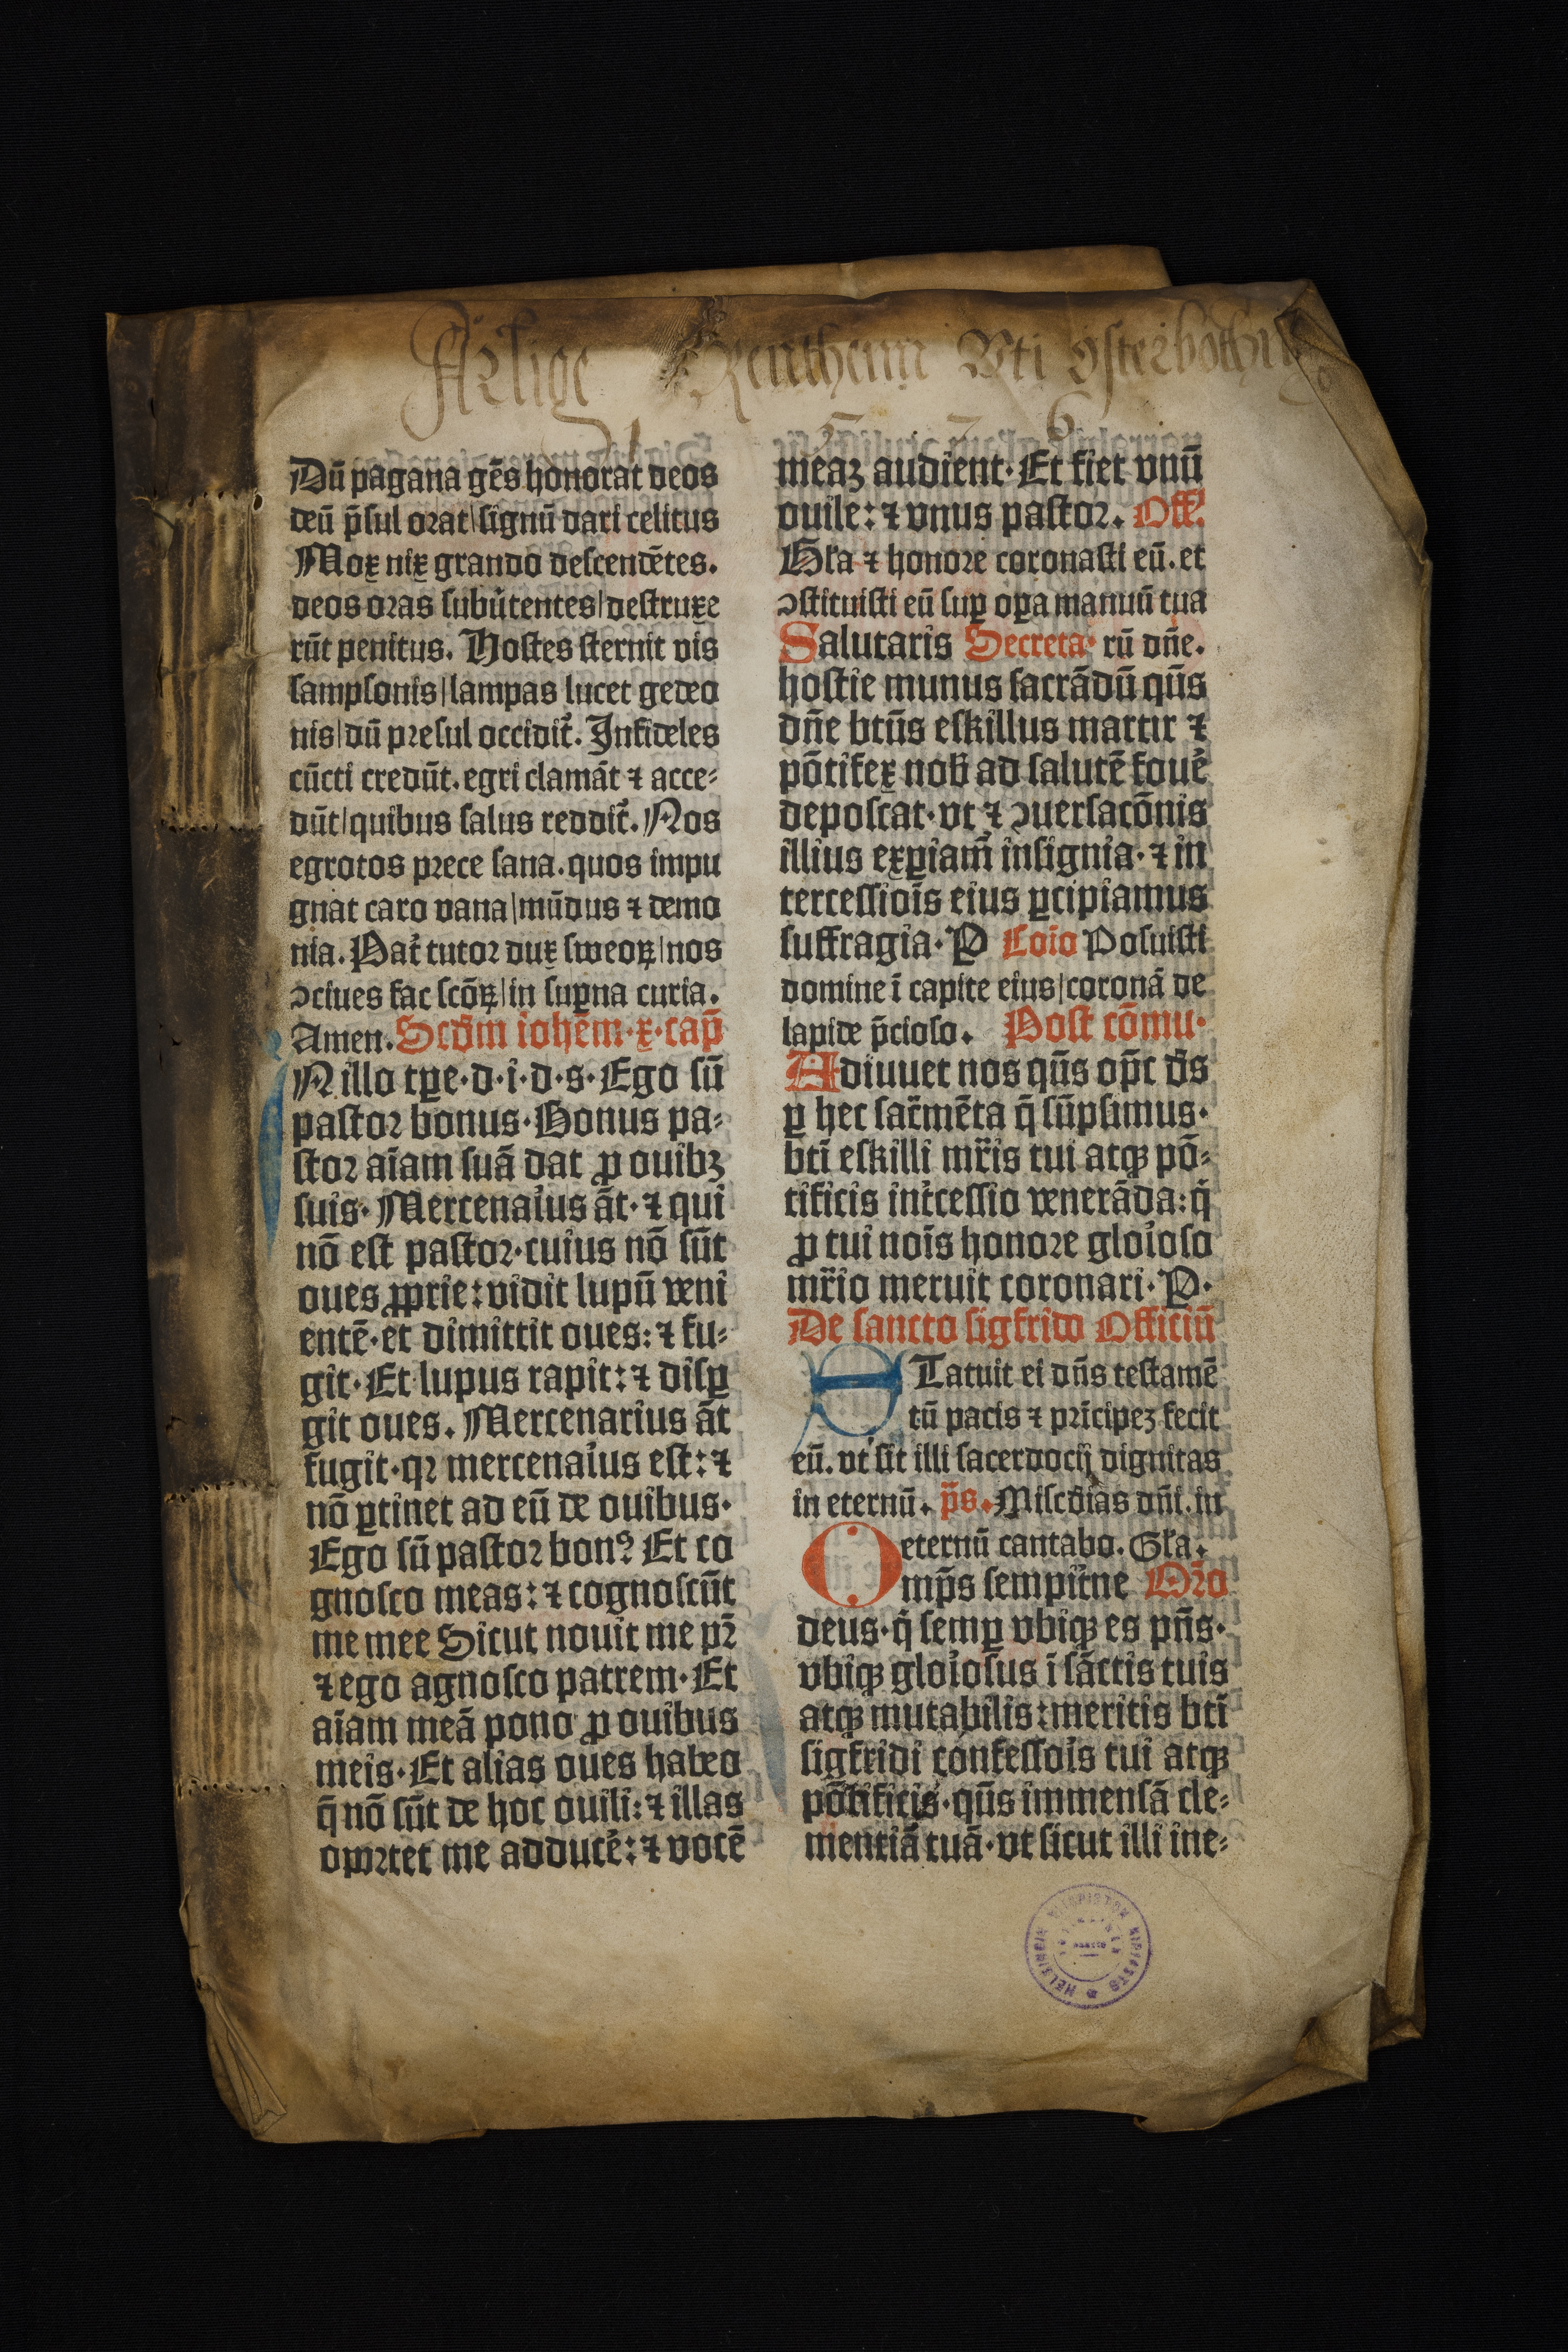 Årlige Renthenn Vti österbothn
1 5 7 6
Dū pagana gēs honorat deos
deū p̄sul orat|signū dari celitus
Mox nix grando descendētes.
deos oras subūtentes|destruxe
rūt penitus. Hostes sternit vis
sampsonis|lampas lucet gedeo
nis|dū presul occidit᷑. Infideles
cūcti credūt. egri clamāt ⁊ acce⸗
dūt|quibus salus reddit᷑. Nos
egrotos prece sana. quos impu
gnat caro vana|mūdus ⁊ demo
nia. Pat᷑ tutor dux sweoꝝ|nos
ↄciues fac scōꝝ|in suꝑna curia.
Amen. Scd̄m iohēm·x·cap̄
N illo tꝑe·d·i·d·s·Ego sū
pastor bonus·Bonus pa⸗
stor aīam suā dat ꝓ ouibꝫ
suis·Mercenaiͥus āt·⁊ qui
nō est pastor·cuius nō sūt
oues ꝓprie: vidit lupū veni
entē·et dimittit oues: ⁊ fu⸗
git·Et lupus rapit: ⁊ disꝑ
git oues. Mercenarius āt
fugit·qꝛ mercenaiͥus est: ⁊
nō ꝑtinet ad eū de ouibus·
Ego sū pastor bonꝰ Et co
gnosco meas: ⁊ cognoscūt
me mee Sicut nouit me pr̄
⁊ ego agnosco patrem·Et
aīam meā pono ꝓ ouibus
meis·Et alias oues habeo
q̄ nō sūt de hoc ouili: ⁊ illas
oportet me adducē: ⁊ vocē
meaꝫ audient·Et fiet vnū
ouile: ⁊ vnus pastor. Off᷑.
Gła ⁊ honore coronasti eū. et
ↄstituisti eū suꝑ oꝑa manuū tua
Salutaris Secreta· rū dn̄e.
hostie munus sacrādū qūs
dn̄e btūs eskillus martir ⁊
pōtifex nob̄ ad salutē fouē᷑
deposcat·vt ⁊ ↄuersacōnis
illius exꝑiam᷑ insignia·⁊ in
tercessiōis eius ꝑcipiamus
suffragia·P Cōio Posuisti
domine ī capite eius|coronā de
lapide p̄cioso. Post cōmu·
Adiuuet nos qūs op̄c ds̄
ꝑ hec sac̄mēta q̄ sūpsimus·
btī eskilli mr̄is tui atqꝫ pō⸗
tificis int᷑cessio venerāda: qͥ
ꝓ tui noīs honore gloiͥoso
mr̄io meruit coronari·P·
De sancto sigfrido Officiū
STatuit ei dn̄s testamē
tū pacis ⁊ prīcipeꝫ fecit
eū. vt sit illi sacerdocij dignitas
in eternū. p̄s. Misc̄dias dn̄i. in
eternū cantabo. Gła.
Omp̄s sempit᷑ne Or̄o
deus·qͥ semꝑ vbiqꝫ es pn̄s·
vbiqꝫ gloiͥosus ī sāctis tuis
atqꝫ mutabilis: meritis btī
sigfridi confessoiͥs tui atqꝫ
pōtificis·qūs immensā cle⸗
mentiā tuā·vt sicut illi ine⸗